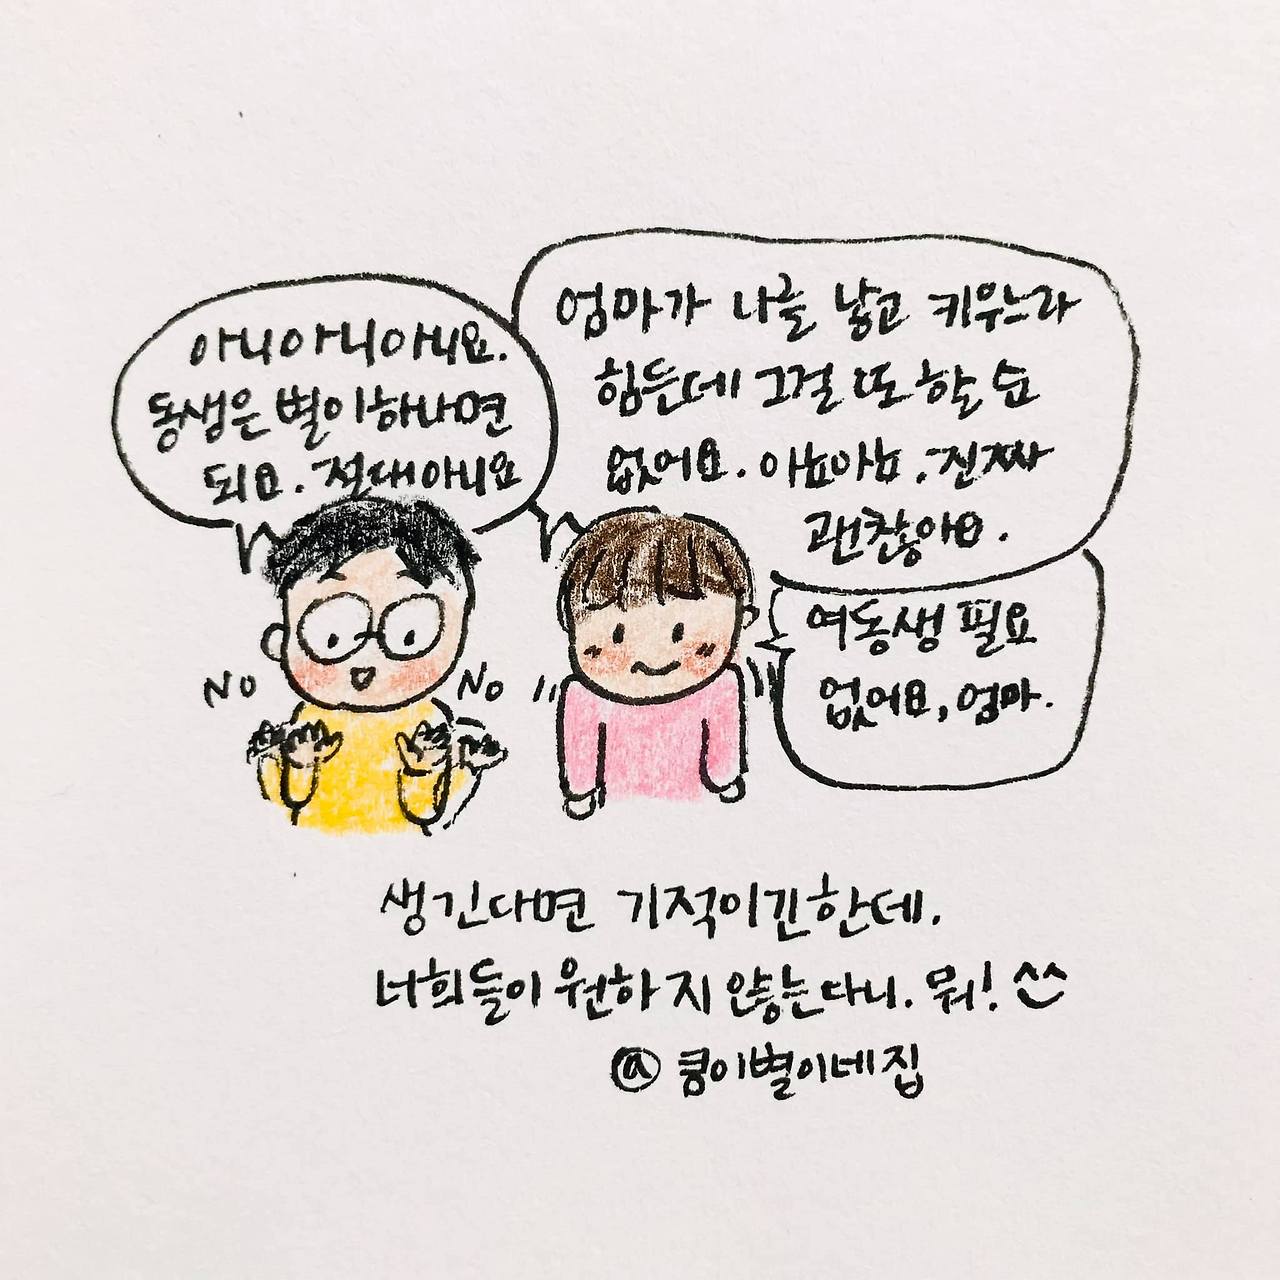 아니아니아니요.
동생은 별이하나면
되요. 절대아니요
엄마가 나를 낳고 키우느라
힘든데 그걸 또 할 순
없어요. 아뇨아뇨. 진짜
괜찮아요.
여동생 필요
없어요, 엄마.
NO
NO
생긴다면 기적이긴한데.
너희들이 원하지 않는다니. 뭐! ^^
@ 쿵이별이네집